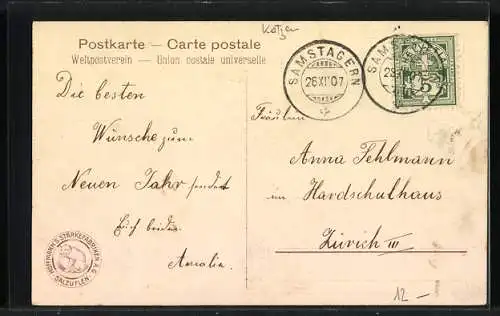 Postkarte – Carte postale
Weltpostverein – Union postale universelle
SAMSTAGERN
26 XI 07
SAMSTAGERN
5
Die besten
Wünsche zum
Neuen Jahr sendet
Euch beiden
Amalia.
Fräulein
Anna Fehlmann
im Hardschulhaus
Zürich III
HOFFMANN'S STÄRKEFABRIKEN A.G.
SALZUFLEN
12 –